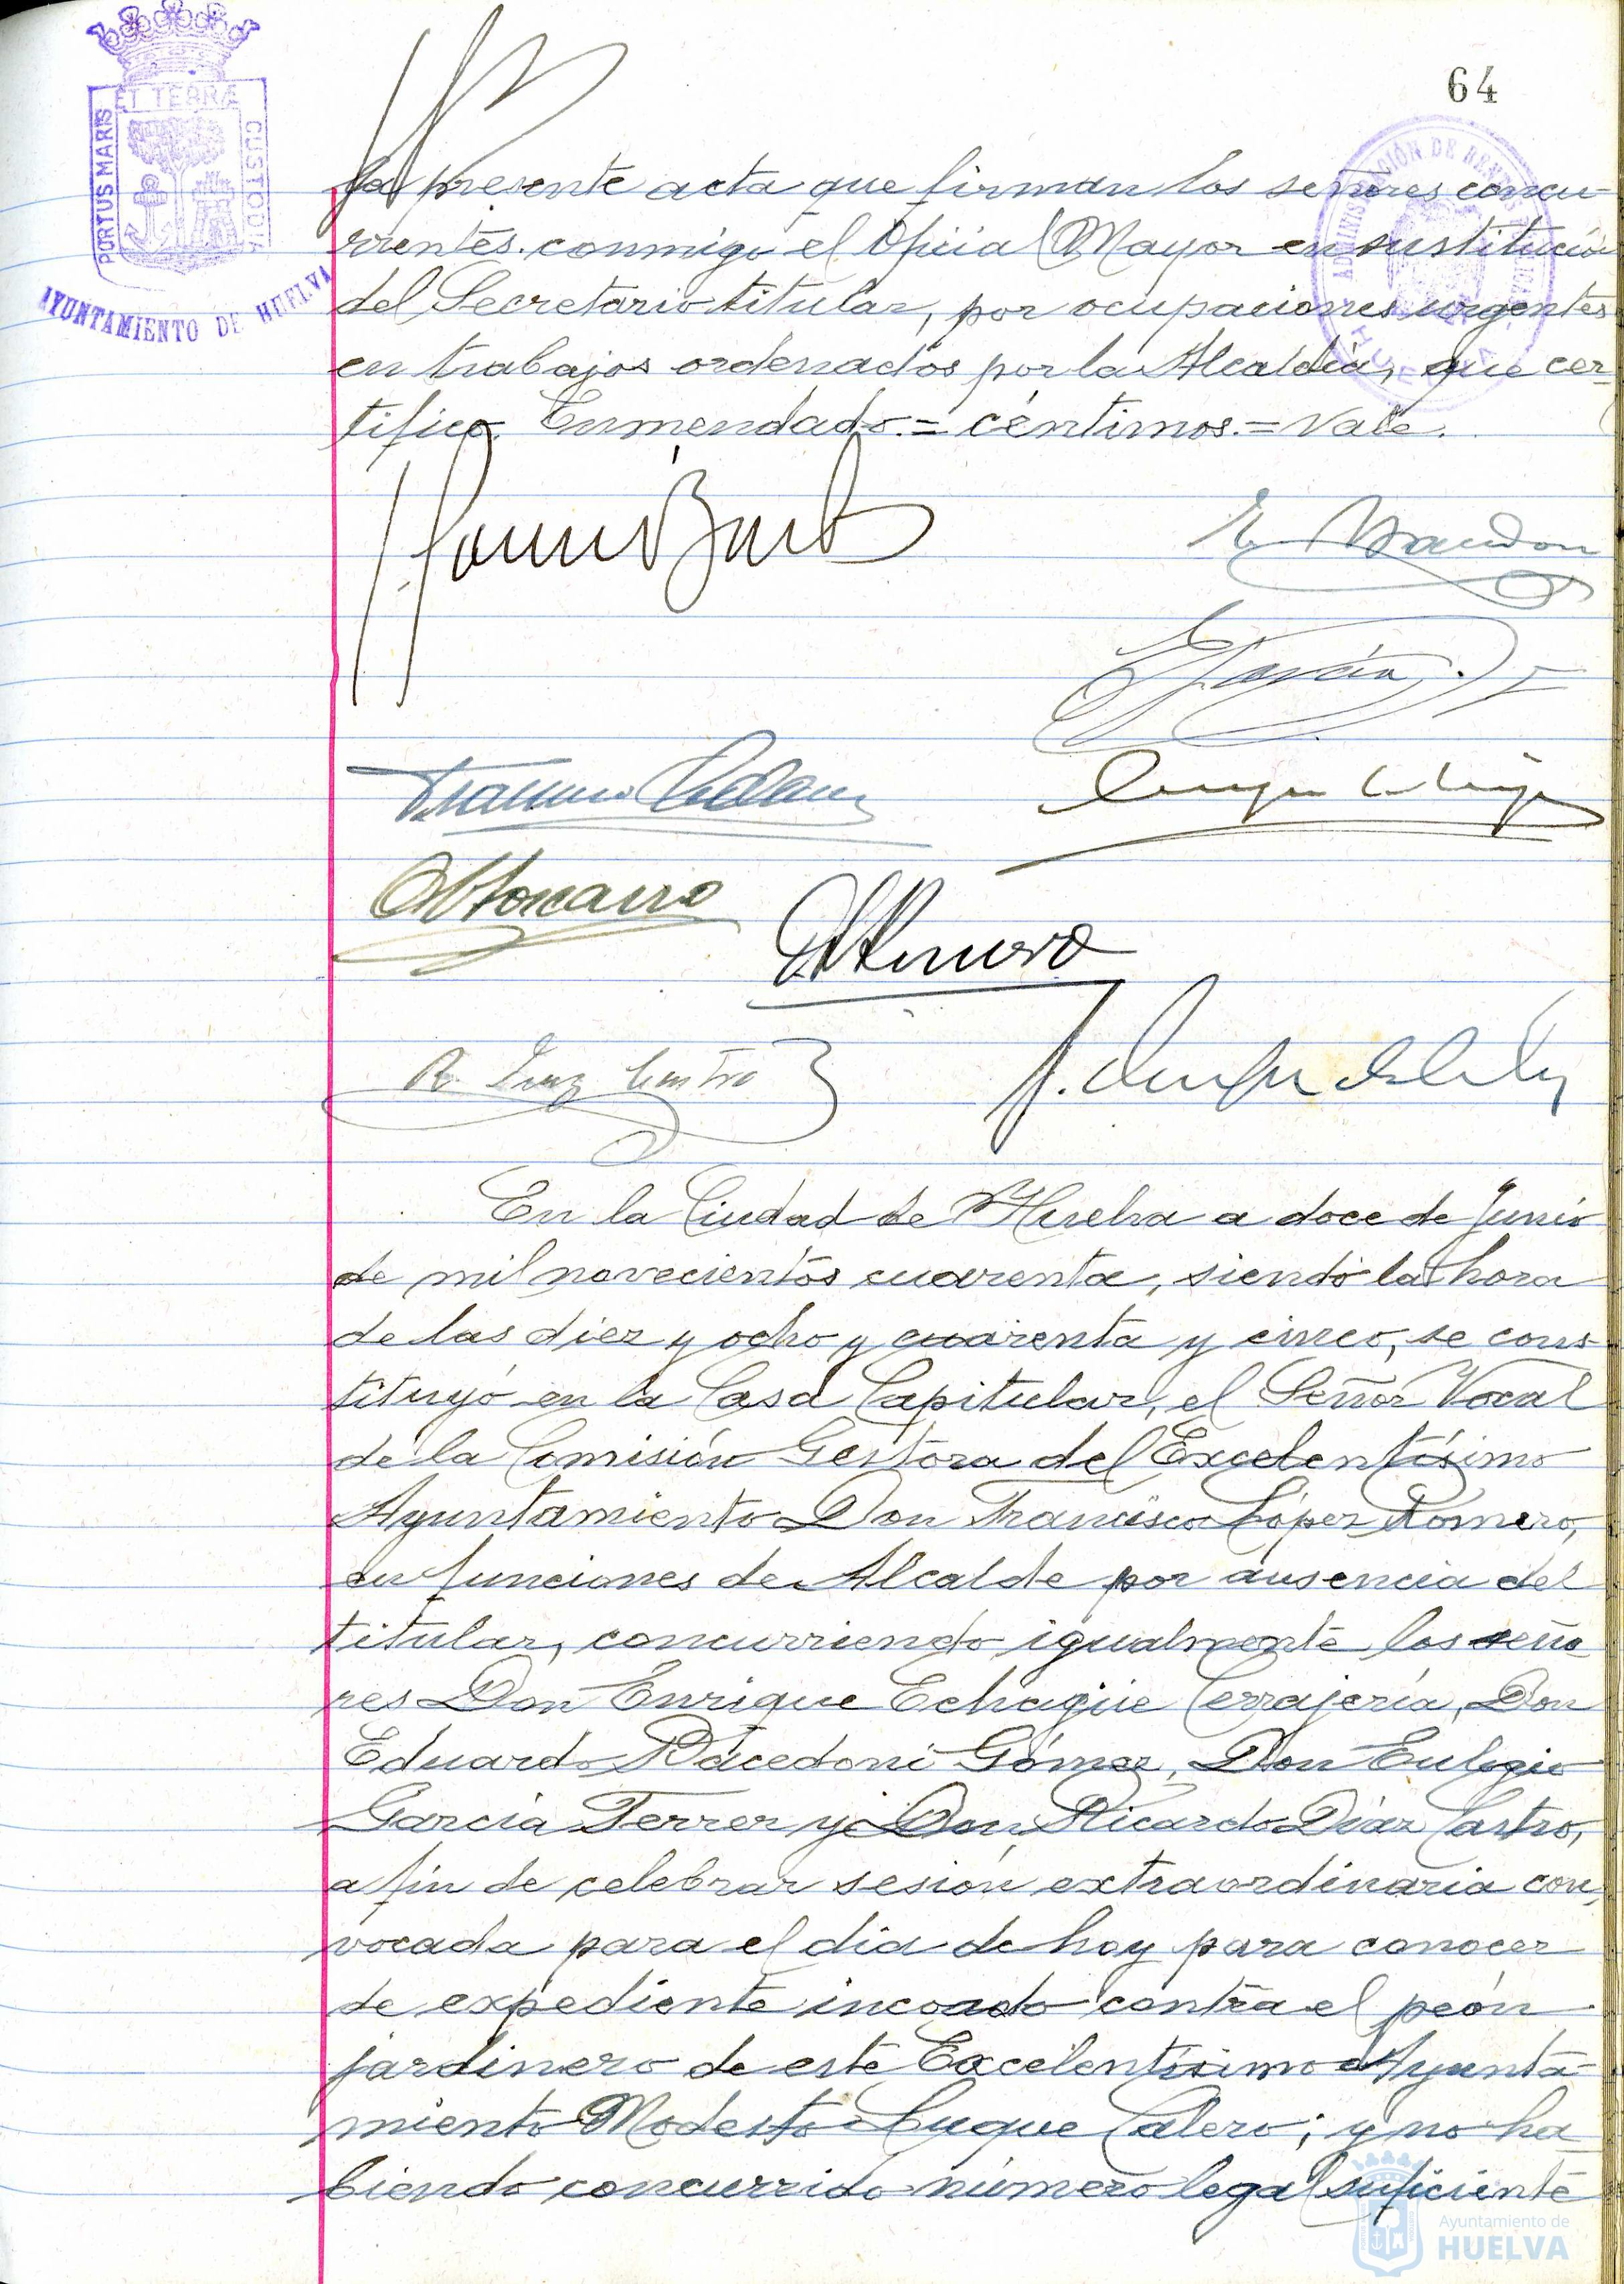 64
PORTUS MARIS ET TERRÆ CUSTODIA
AYUNTAMIENTO DE HUELVA
la presente acta que firman los señores concu-
rrentes conmigo el Oficial Mayor en sustitución
del Secretario titular, por ocupaciones urgentes
en trabajos ordenados por la Alcaldía, que cer-
tifico. Enmendado.=céntimos.=Vale.
R. Díaz Castro
En la Ciudad de Huelva a doce de Junio
de mil novecientos cuarenta, siendo la hora
de las diez y ocho y cuarenta y cinco, se cons-
tituyó en la Casa Capitular, el Señor Vocal
de la Comisión Gestora del Excelentísimo
Ayuntamiento Don Francisco López Romero,
en funciones de Alcalde por ausencia del
titular, concurriendo igualmente los seño
res Don Enrique Echagüe Cerrajería, Don
Eduardo Bacedoni Gómez, Don Eulogio
García Ferrer y Don Ricardo Díaz Castro,
a fin de celebrar sesión extraordinaria con-
vocada para el día de hoy para conocer
de expediente incoado contra el peón
jardinero de este Excelentísimo Ayunta-
miento Modesto Luque Calero; y no ha-
biendo concurrido número legal suficiente
Ayuntamiento de
HUELVA